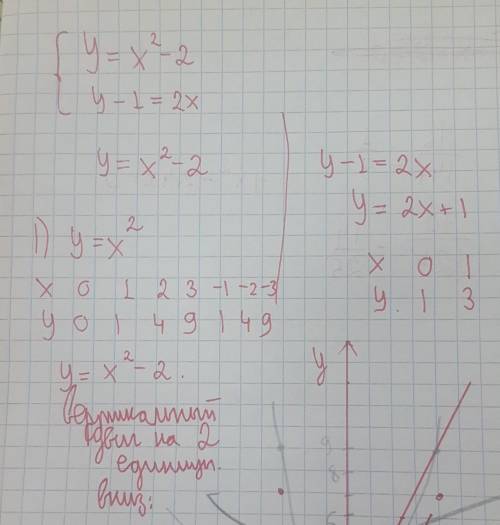 y = x² - 2
y - 1 = 2x
y = x² - 2
1) y = x²
x 0 1 2 3 -1 -2 -3
y 0 1 4 9 1 4 9
y = x² - 2.
Вертикальный
сдвиг на 2
единицы
вниз:
y - 1 = 2x
y = 2x + 1
x 0 1
y 1 3
y
9
8